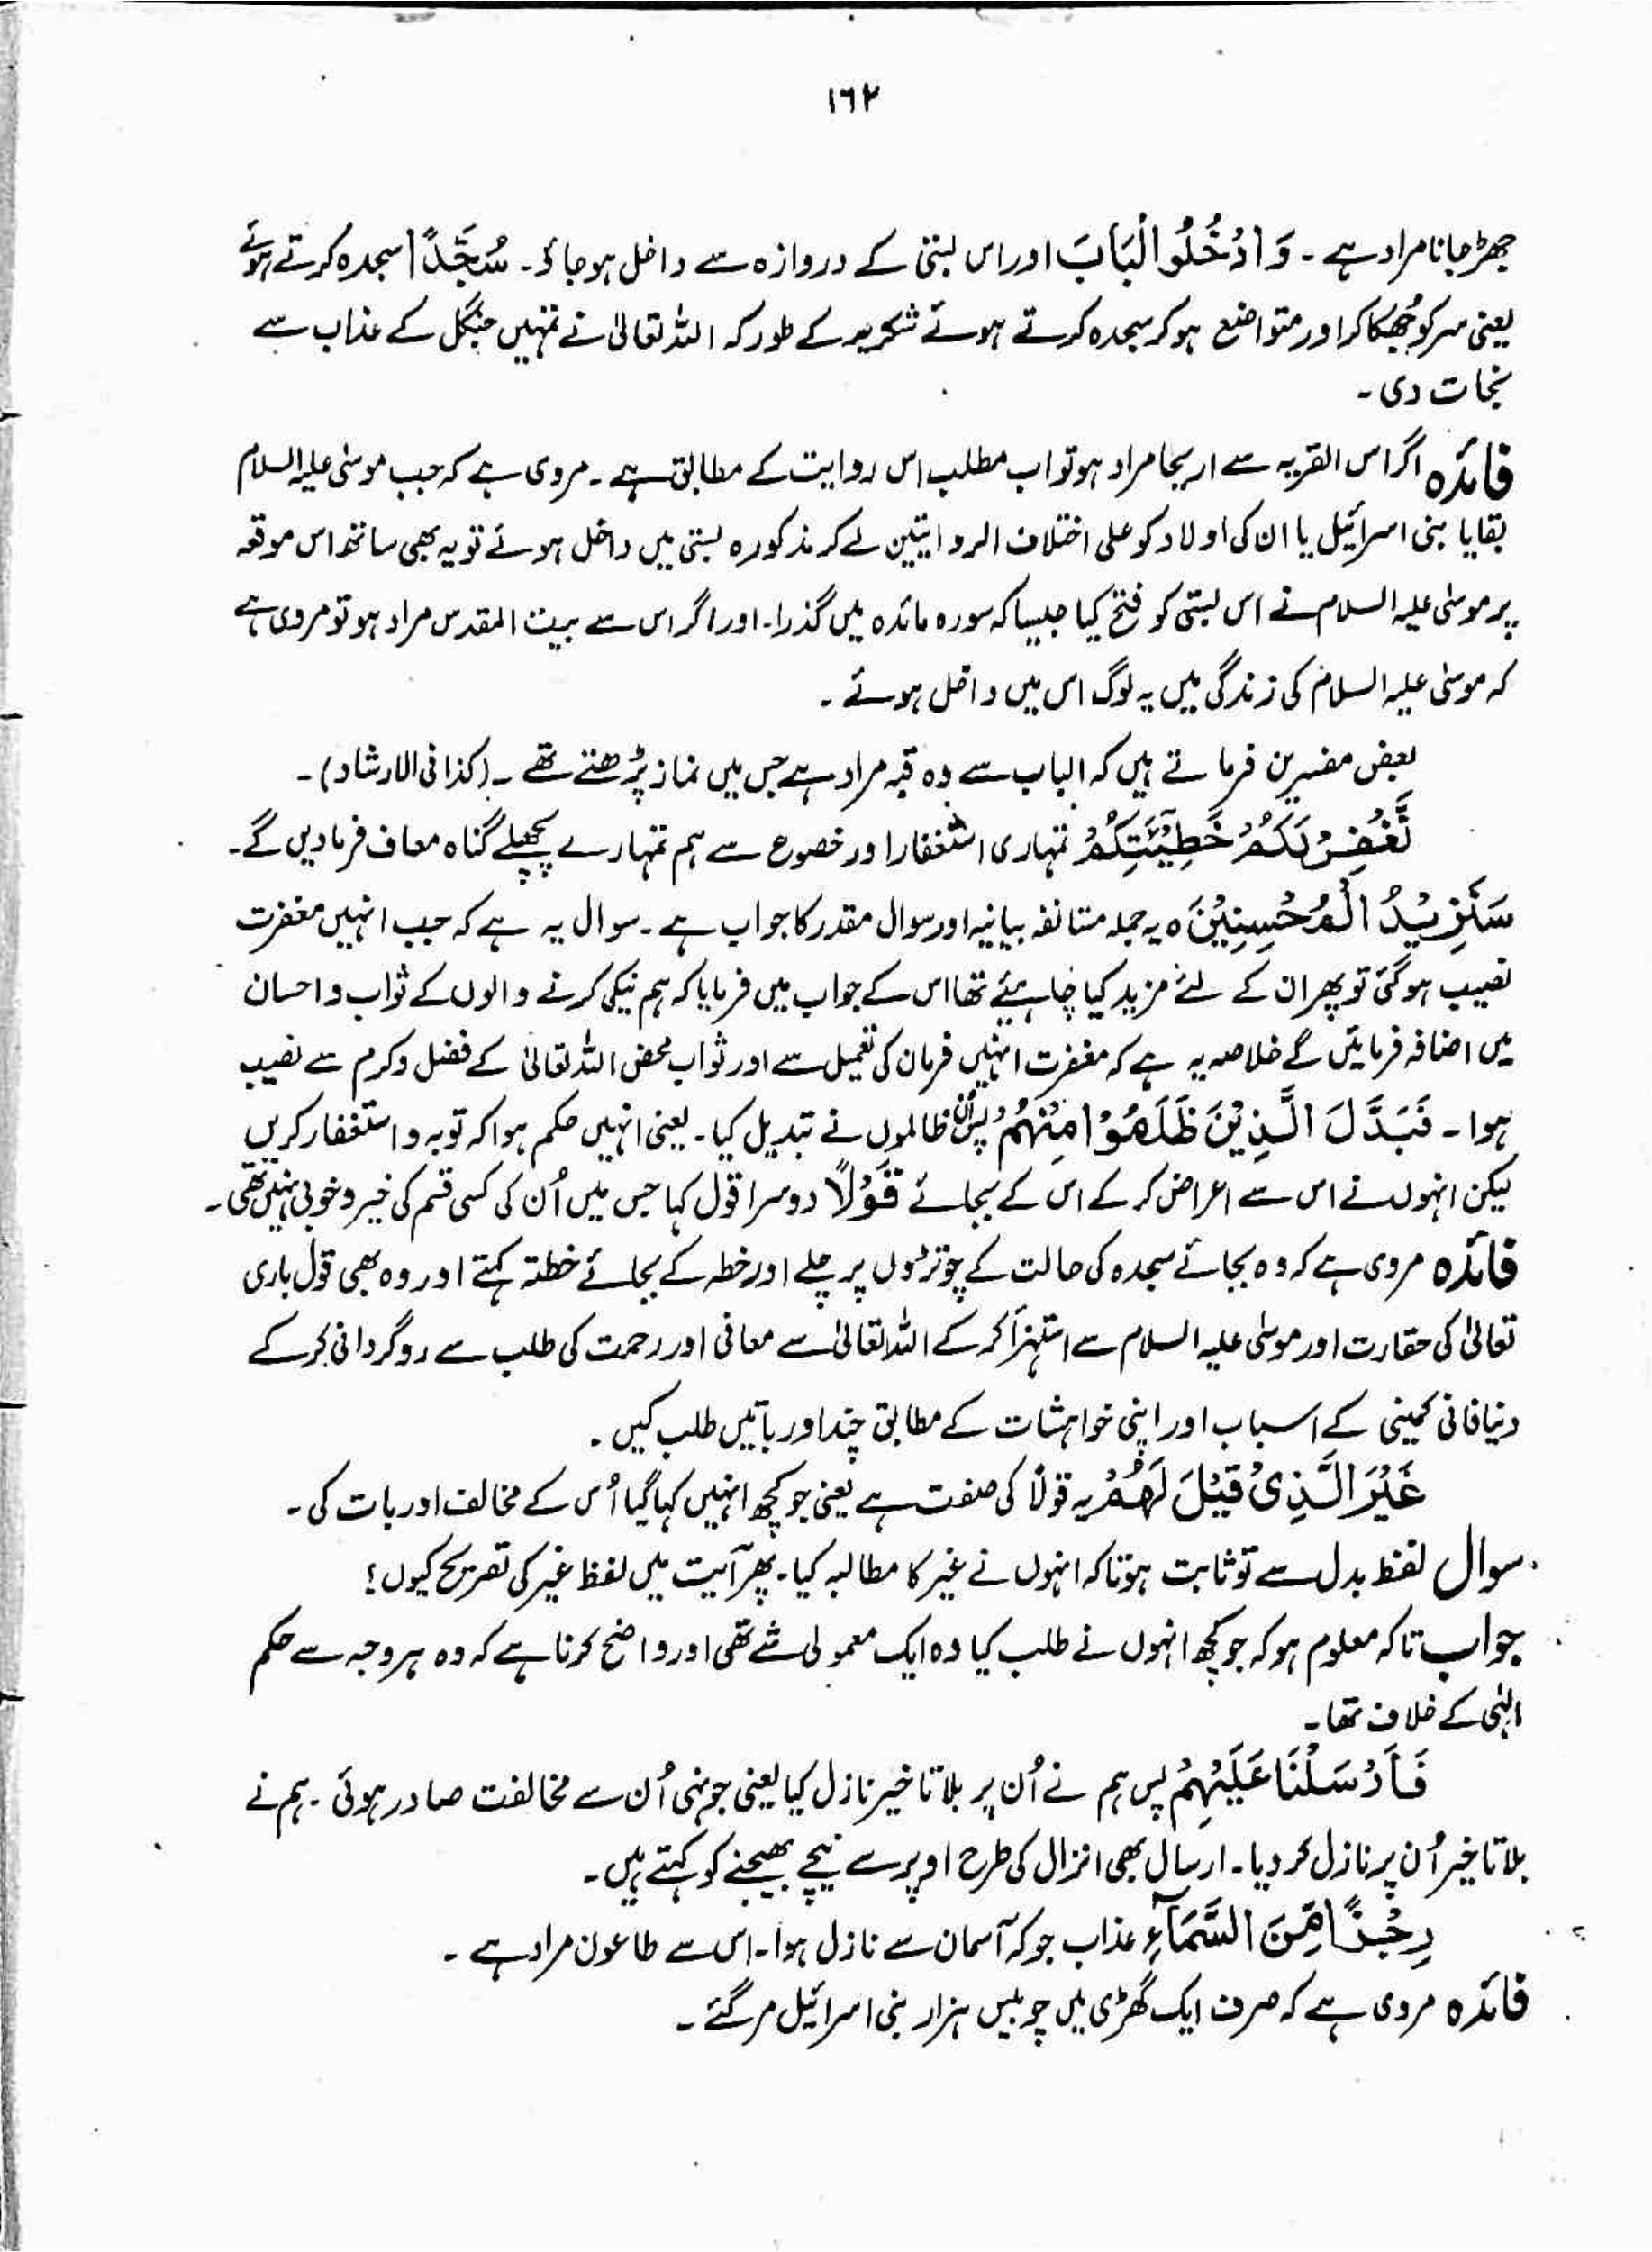 ۱۶۲
جھڑ جانا مراد ہے ۔ وَادْخُلُوا الْبَابَ اور اس بستی کے دروازہ سے داخل ہو جاؤ ۔ سُجَّدًا سجدہ کرتے ہوئے
یعنی سر کو جُھکا کر اور متواضع ہو کر سجدہ کرتے ہوئے شکریہ کے طور کہ اللہ تعالیٰ نے تمہیں جنگل کے عذاب سے
نجات دی ۔
فائدہ اگر اس القریہ سے اریحا مراد ہو تو اب مطلب اس روایت کے مطابق ہے ۔ مروی ہے کہ جب موسٰی علیہ السلام
بقایا بنی اسرائیل یا ان کی اولاد کو علی اختلاف الروایتین لے کر مذکورہ بستی میں داخل ہوئے تو یہ بھی ساتھ اس موقعہ
پر موسٰی علیہ السلام نے اس بستی کو فتح کیا جیسا کہ سورہ مائدہ میں گذرا ۔ اور اگر اس سے بیت المقدس مراد ہو تو مروی ہے
کہ موسٰی علیہ السلام کی زندگی میں یہ لوگ اس میں داخل ہوئے ۔
بعض مفسرین فرماتے ہیں کہ الباب سے وہ قبہ مراد ہے جس میں نماز پڑھتے تھے ۔ (کذا فی الارشاد) ۔
نَّغْفِرْ لَكُمْ خَطِيْٓئٰتِكُمْ تمہاری استغفار اور خضوع سے ہم تمہارے پچھلے گناہ معاف فرما دیں گے ۔
سَنَزِيْدُ الْمُحْسِنِيْنَ ہ یہ جملہ مستانفہ بیانیہ اور سوال مقدر کا جواب ہے ۔ سوال یہ ہے کہ جب انہیں مغفرت
نصیب ہو گئی تو پھر ان کے لئے مزید کیا چاہیئے تھا اس کے جواب میں فرمایا کہ ہم نیکی کرنے والوں کے ثواب و احسان
میں اضافہ فرمائیں گے خلاصہ یہ ہے کہ مغفرت انہیں فرمان کی تعمیل سے اور ثواب محض اللہ تعالیٰ کے فضل و کرم سے نصیب
ہوا ۔ فَبَدَّلَ الَّذِيْنَ ظَلَمُوْا مِنْهُمْ پس ان ظالموں نے تبدیل کیا ۔ یعنی انہیں حکم ہوا کہ توبہ و استغفار کریں
لیکن انہوں نے اس سے اعراض کر کے اس کے بجائے قَوْلًا دوسرا قول کہا جس میں اُن کی کسی قسم کی خیر و خوبی نہیں تھی ۔
فائدہ مروی ہے کہ وہ بجائے سجدہ کی حالت کے چوتڑوں پر چلے اور حطہ کے بجائے حنطتہ کہتے اور وہ بھی قول باری
تعالیٰ کی حقارت اور موسٰی علیہ السلام سے استہزأ کر کے اللہ تعالیٰ سے معافی اور رحمت کی طلب سے روگردانی کر کے
دنیا فانی کمینی کے اسباب اور اپنی خواہشات کے مطابق چند اور باتیں طلب کیں ۔
غَيْرَ الَّذِىْ قِيْلَ لَهُمْ یہ قولاً کی صفت ہے یعنی جو کچھ انہیں کہا گیا اُس کے مخالف اور بات کی ۔
سوال لفظ بدل سے تو ثابت ہوتا کہ انہوں نے غیر کا مطالبہ کیا ۔ پھر آیت میں لفظ غیر کی تصریح کیوں ؟
جواب تاکہ معلوم ہو کہ جو کچھ انہوں نے طلب کیا وہ ایک معمولی شے تھی اور واضح کرنا ہے کہ وہ ہر وجہ سے حکم
الٰہی کے خلاف تھا ۔
فَاَرْسَلْنَا عَلَيْهِمْ پس ہم نے اُن پر بلا تاخیر نازل کیا یعنی جونہی اُن سے مخالفت صادر ہوئی ۔ ہم نے
بلا تاخیر اُن پر نازل کر دیا ۔ ارسال بھی انزال کی طرح اوپر سے نیچے بھیجنے کو کہتے ہیں ۔
رِجْزًا مِّنَ السَّمَآءِ عذاب جو کہ آسمان سے نازل ہوا ۔ اس سے طاعون مراد ہے ۔
فائدہ مروی ہے کہ صرف ایک گھڑی میں چوبیس ہزار بنی اسرائیل مر گئے ۔